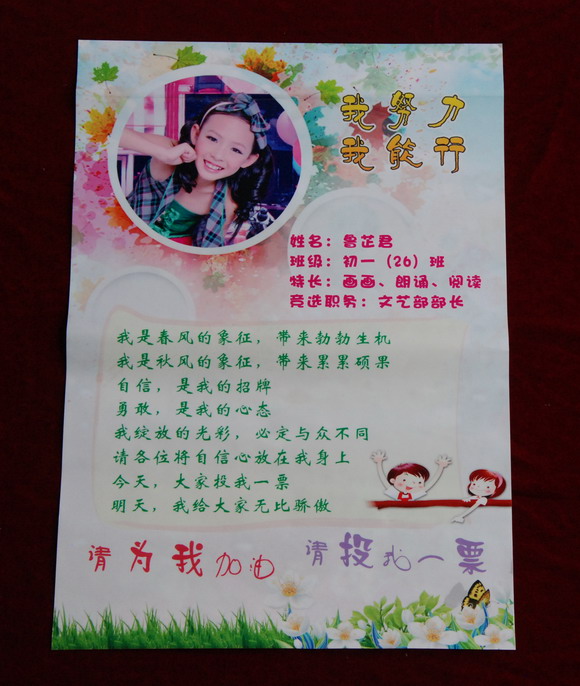 我努力
我能行
姓名：鲁芷君
班级：初一（26）班
特长：画画、朗诵、阅读
竞选职务：文艺部部长
我是春风的象征，带来勃勃生机
我是秋风的象征，带来累累硕果
自信，是我的招牌
勇敢，是我的心态
我绽放的光彩，必定与众不同
请各位将自信心放在我身上
今天，大家投我一票
明天，我给大家无比骄傲
请为我加油 请投我一票